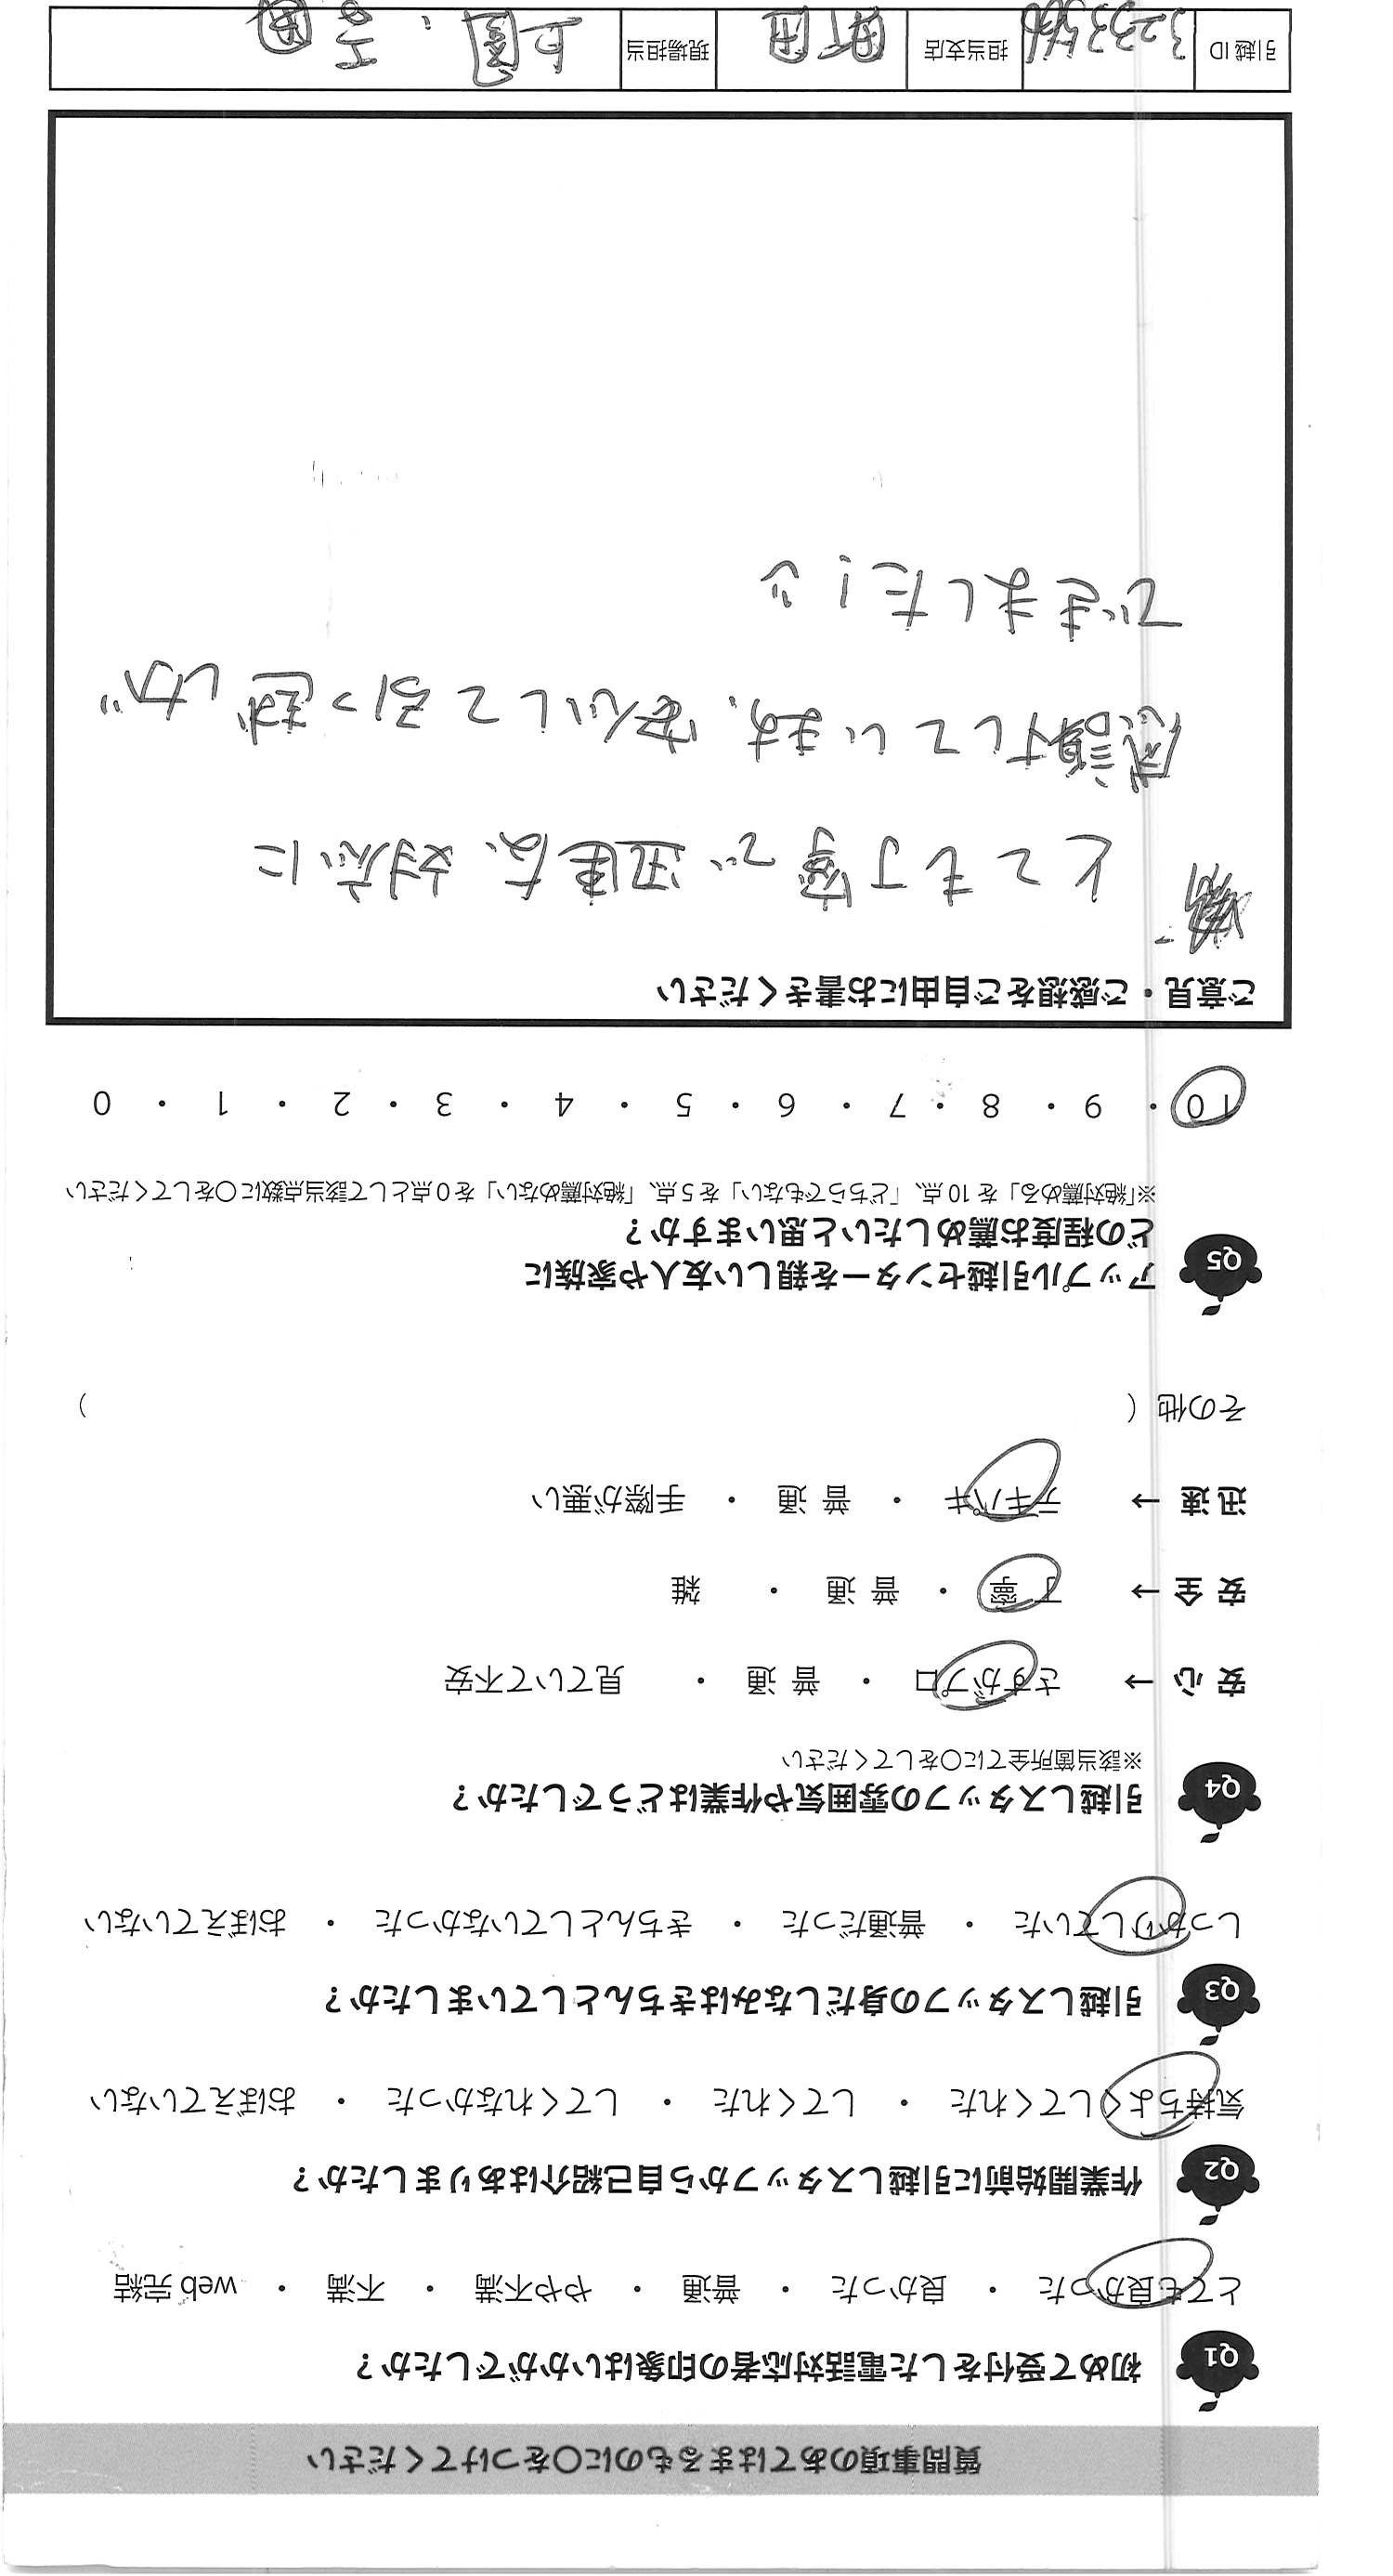 質問事項のあてはまるものに○をつけてください
Q1 初めて受付をした電話対応者の印象はいかがでしたか？
とても良かった ・ 良かった ・ 普通 ・ やや不満 ・ 不満 ・ web 完結
Q2 作業開始前に引越しスタッフから自己紹介はありましたか？
気持ちよくしてくれた ・ してくれた ・ してくれなかった ・ おぼえていない
Q3 引越しスタッフの身だしなみはきちんとしていましたか？
しっかりしていた ・ 普通だった ・ きちんとしていなかった ・ おぼえていない
Q4 引越しスタッフの雰囲気や作業はどうでしたか？
※該当箇所全てに○をしてください
安 心 → さすがプロ ・ 普 通 ・ 見ていて不安
安 全 → 丁 寧 ・ 普 通 ・ 雑
迅 速 → テキパキ ・ 普 通 ・ 手際が悪い
その他（ ）
Q5 アップル引越センターを親しい友人や家族に
どの程度お薦めしたいと思いますか？
※「絶対薦める」を 10 点、「どちらでもない」を 5 点、「絶対薦めない」を 0 点として該当点数に○をしてください
10 ・ 9 ・ 8 ・ 7 ・ 6 ・ 5 ・ 4 ・ 3 ・ 2 ・ 1 ・ 0
ご意見・ご感想をご自由にお書きください
とても丁寧で迅速な、対応に
感謝しています。安心して引っ越しが
できました！
引越 ID 担当支店 町田 現場担当